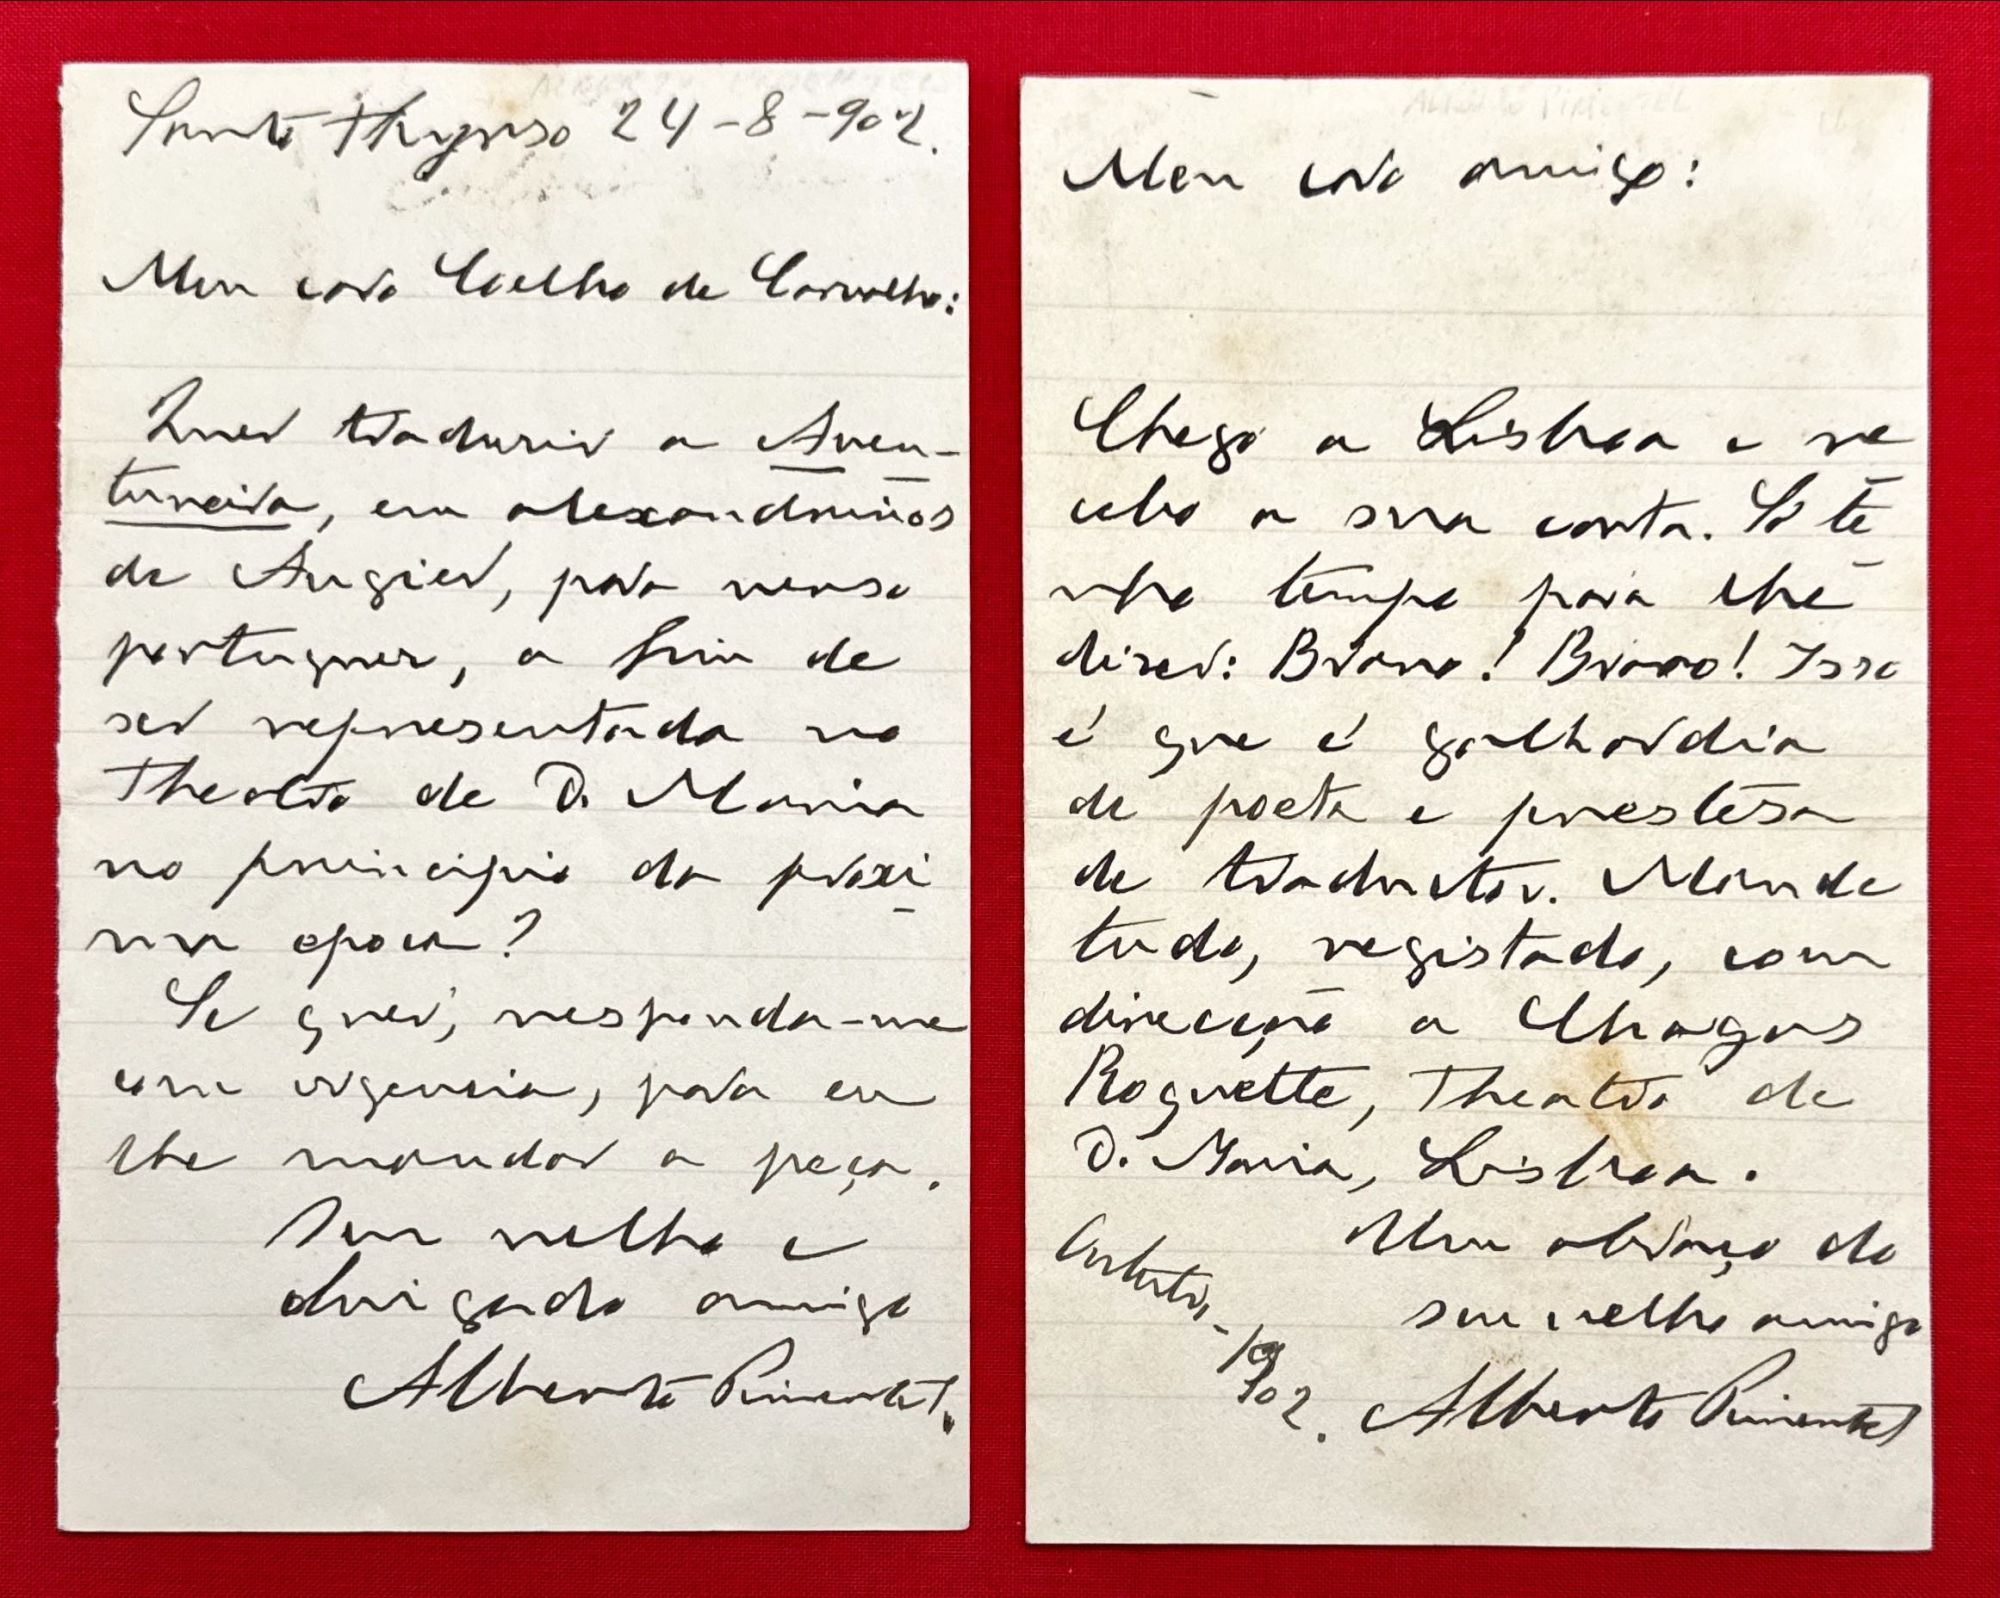 Santo Thyrso 24-8-902.
Meu caro Coelho de Carvalho:
Quer traduzir a Aven-
tureira, em alexandrinos
de Augier, para verso
portuguez, a fim de
ser representada no
Theatro de D. Maria
no principio da proxi
ma epoca?
Se quer, responda-me
com urgencia, para eu
lhe mandar a peça.
Seu velho e
obrigado amigo
Alberto Pimentel.
ALBERTO PIMENTEL
Meu caro amigo:
Chego a Lisboa e re
cebo a sua carta. Só te
nho tempo para lhe
dizer: Bravo! Bravo! Isso
é que é galhardia
de poeta e prestesa
de traductor. Mande
tudo, registado, com
direcção a Chagas
Roquette, Theatro de
D. Maria, Lisboa.
Um abraço do
seu velho amigo
Alberto Pimentel
902.